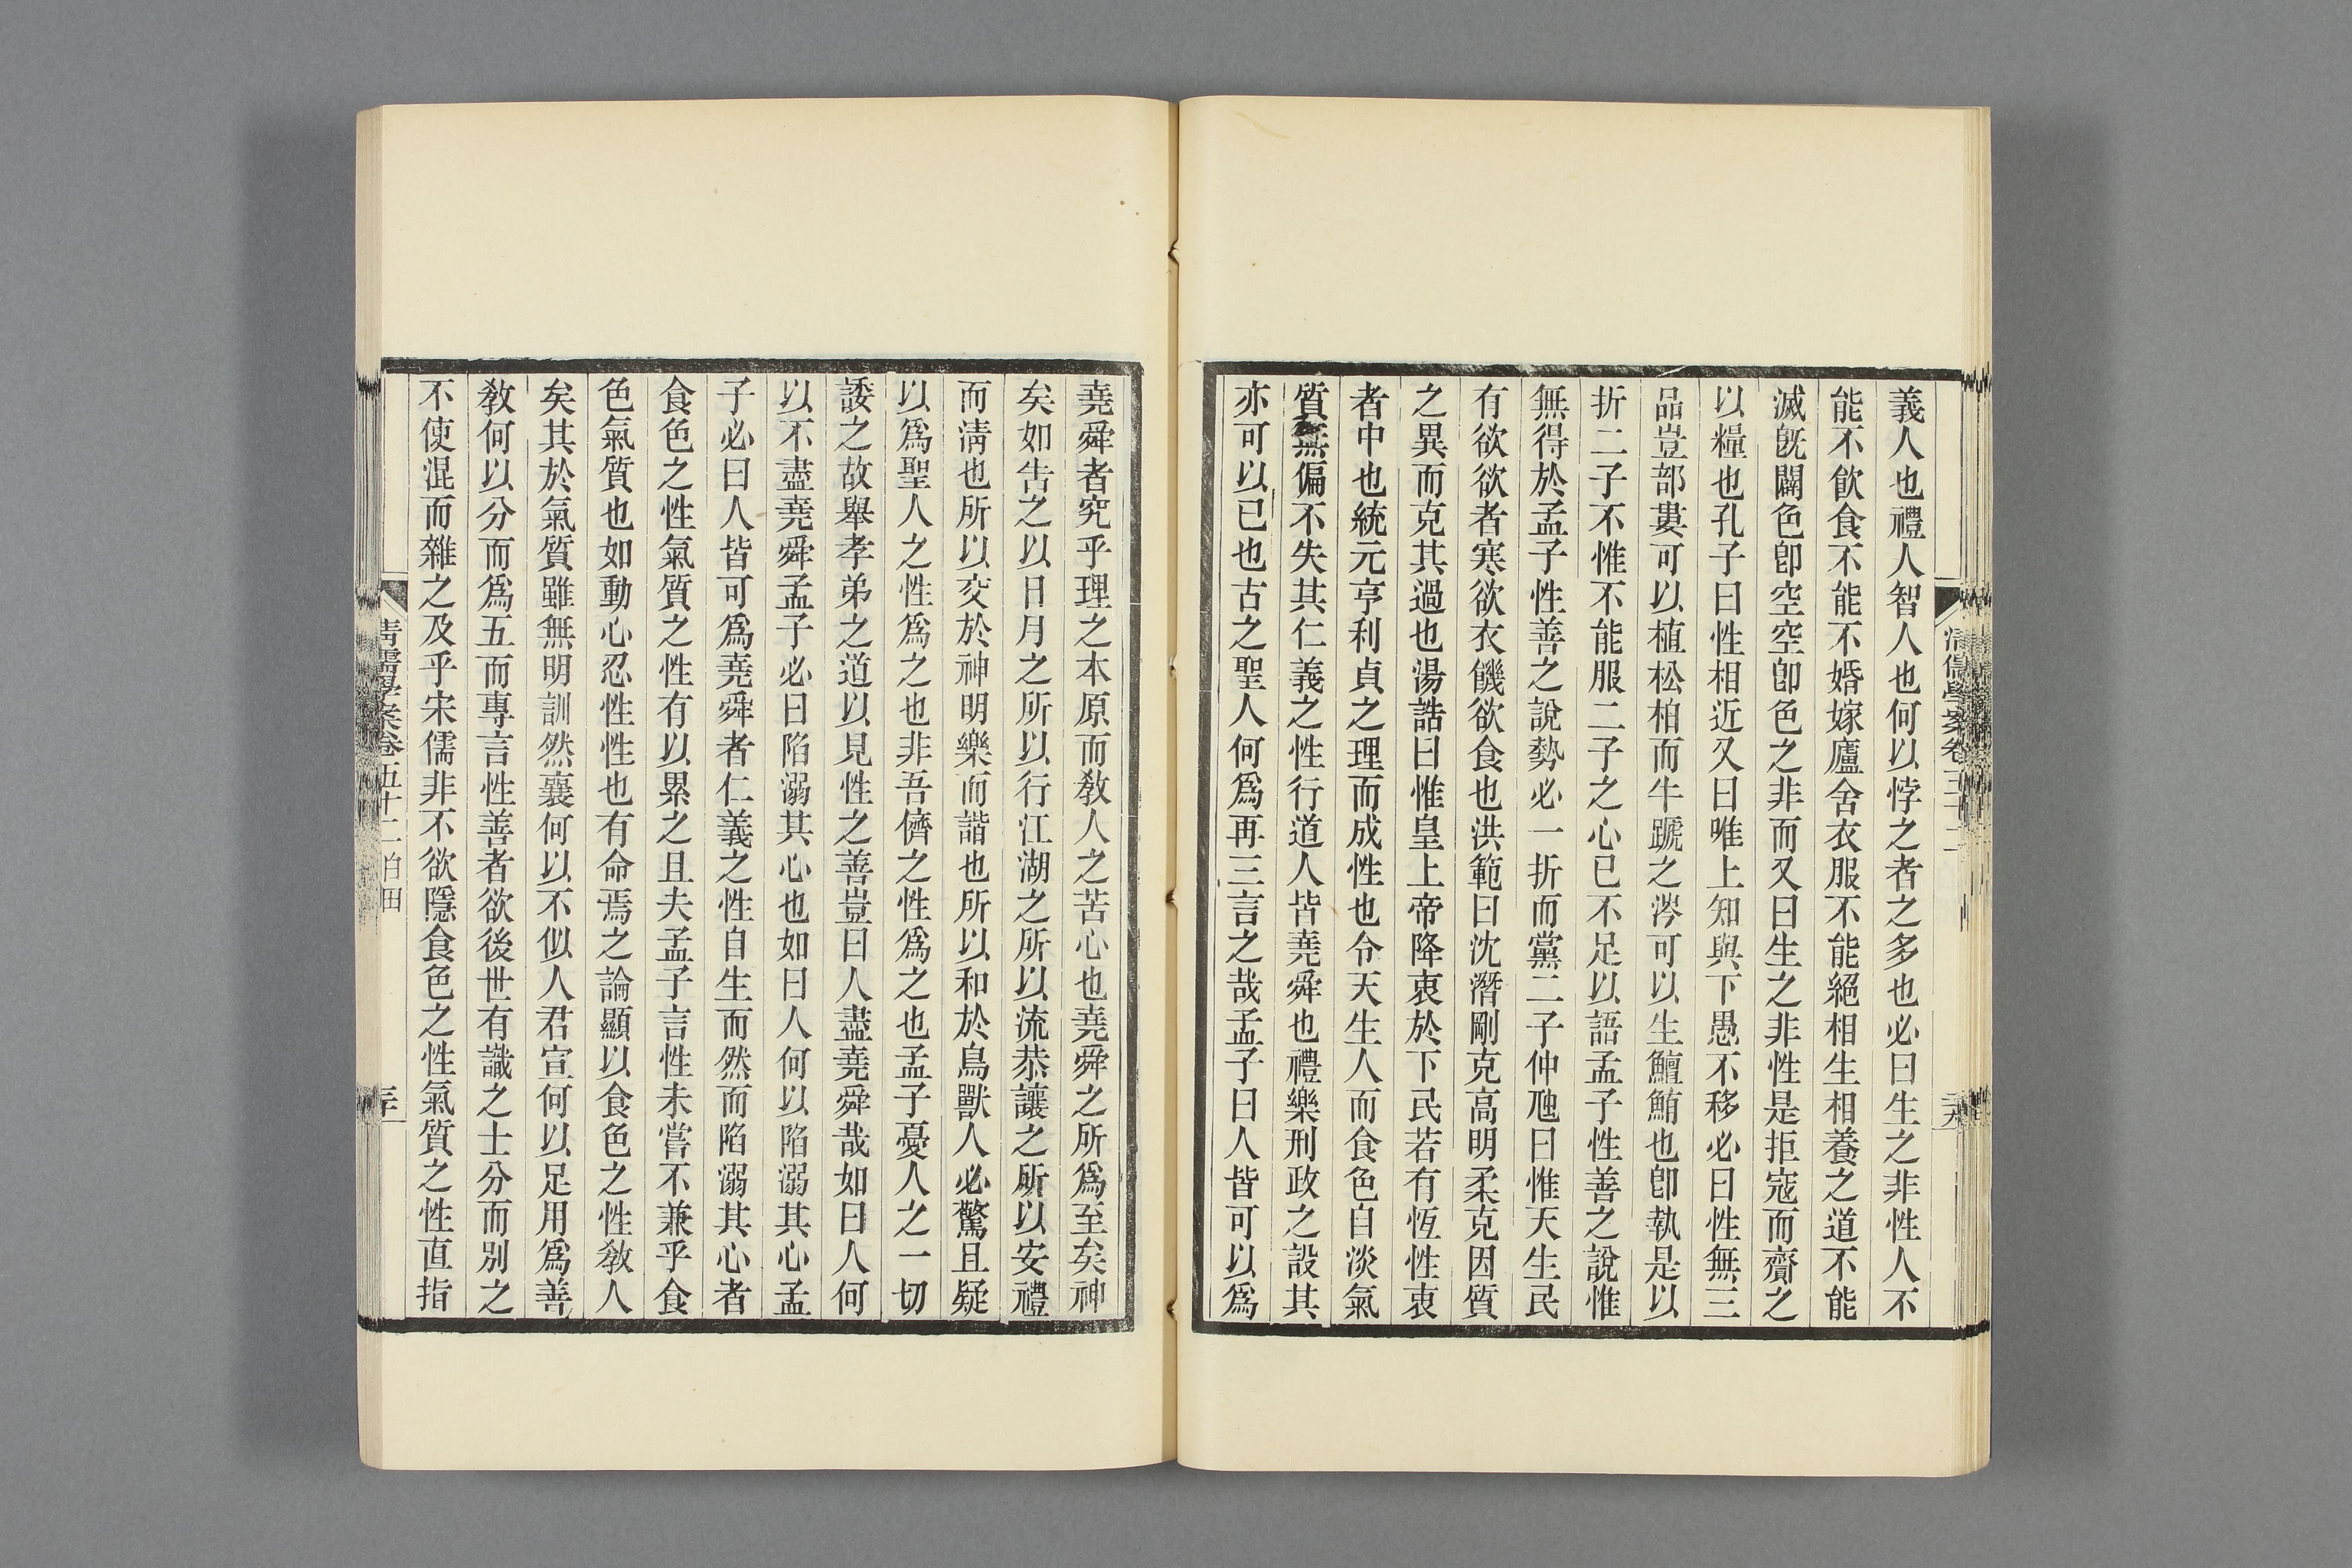 義人也禮人智人也何以悖之者之多也必曰生之非性人不
能不飲食不能不婚嫁廬舍衣服不能絕相生相養之道不能
滅旣闢色卽空空卽色之非而又曰生之非性是拒寇而齎之
以糧也孔子曰性相近又曰唯上知與下愚不移必曰性無三
品豈部婁可以植松柏而牛蹏之涔可以生鱣鮪也卽執是以
折二子不惟不能服二子之心已不足以語孟子性善之說惟
無得於孟子性善之說勢必一折而黨二子仲虺曰惟天生民
有欲欲者寒欲衣饑欲食也洪範曰沈潛剛克高明柔克因質
之異而克其過也湯誥曰惟皇上帝降衷於下民若有恆性衷
者中也統元亨利貞之理而成性也令天生人而食色自淡氣
質無偏不失其仁義之性行道人皆堯舜也禮樂刑政之設其
亦可以已也古之聖人何爲再三言之哉孟子曰人皆可以爲
堯舜者究乎理之本原而敎人之苦心也堯舜之所爲至矣神
矣如告之以日月之所以行江湖之所以流恭讓之所以安禮
而淸也所以交於神明樂而諧也所以和於鳥獸人必驚且疑
以爲聖人之性爲之也非吾儕之性爲之也孟子憂人之一切
諉之故舉孝弟之道以見性之善豈曰人盡堯舜哉如曰人何
以不盡堯舜孟子必曰陷溺其心也如曰人何以陷溺其心孟
子必曰人皆可爲堯舜者仁義之性自生而然而陷溺其心者
食色之性氣質之性有以累之且夫孟子言性未嘗不兼乎食
色氣質也如動心忍性性也有命焉之論顯以食色之性敎人
矣其於氣質雖無明訓然襄何以不似人君宣何以足用爲善
敎何以分而爲五而專言性善者欲後世有識之士分而別之
不使混而雜之及乎宋儒非不欲隱食色之性氣質之性直指
淸儒學案卷五十二 白田